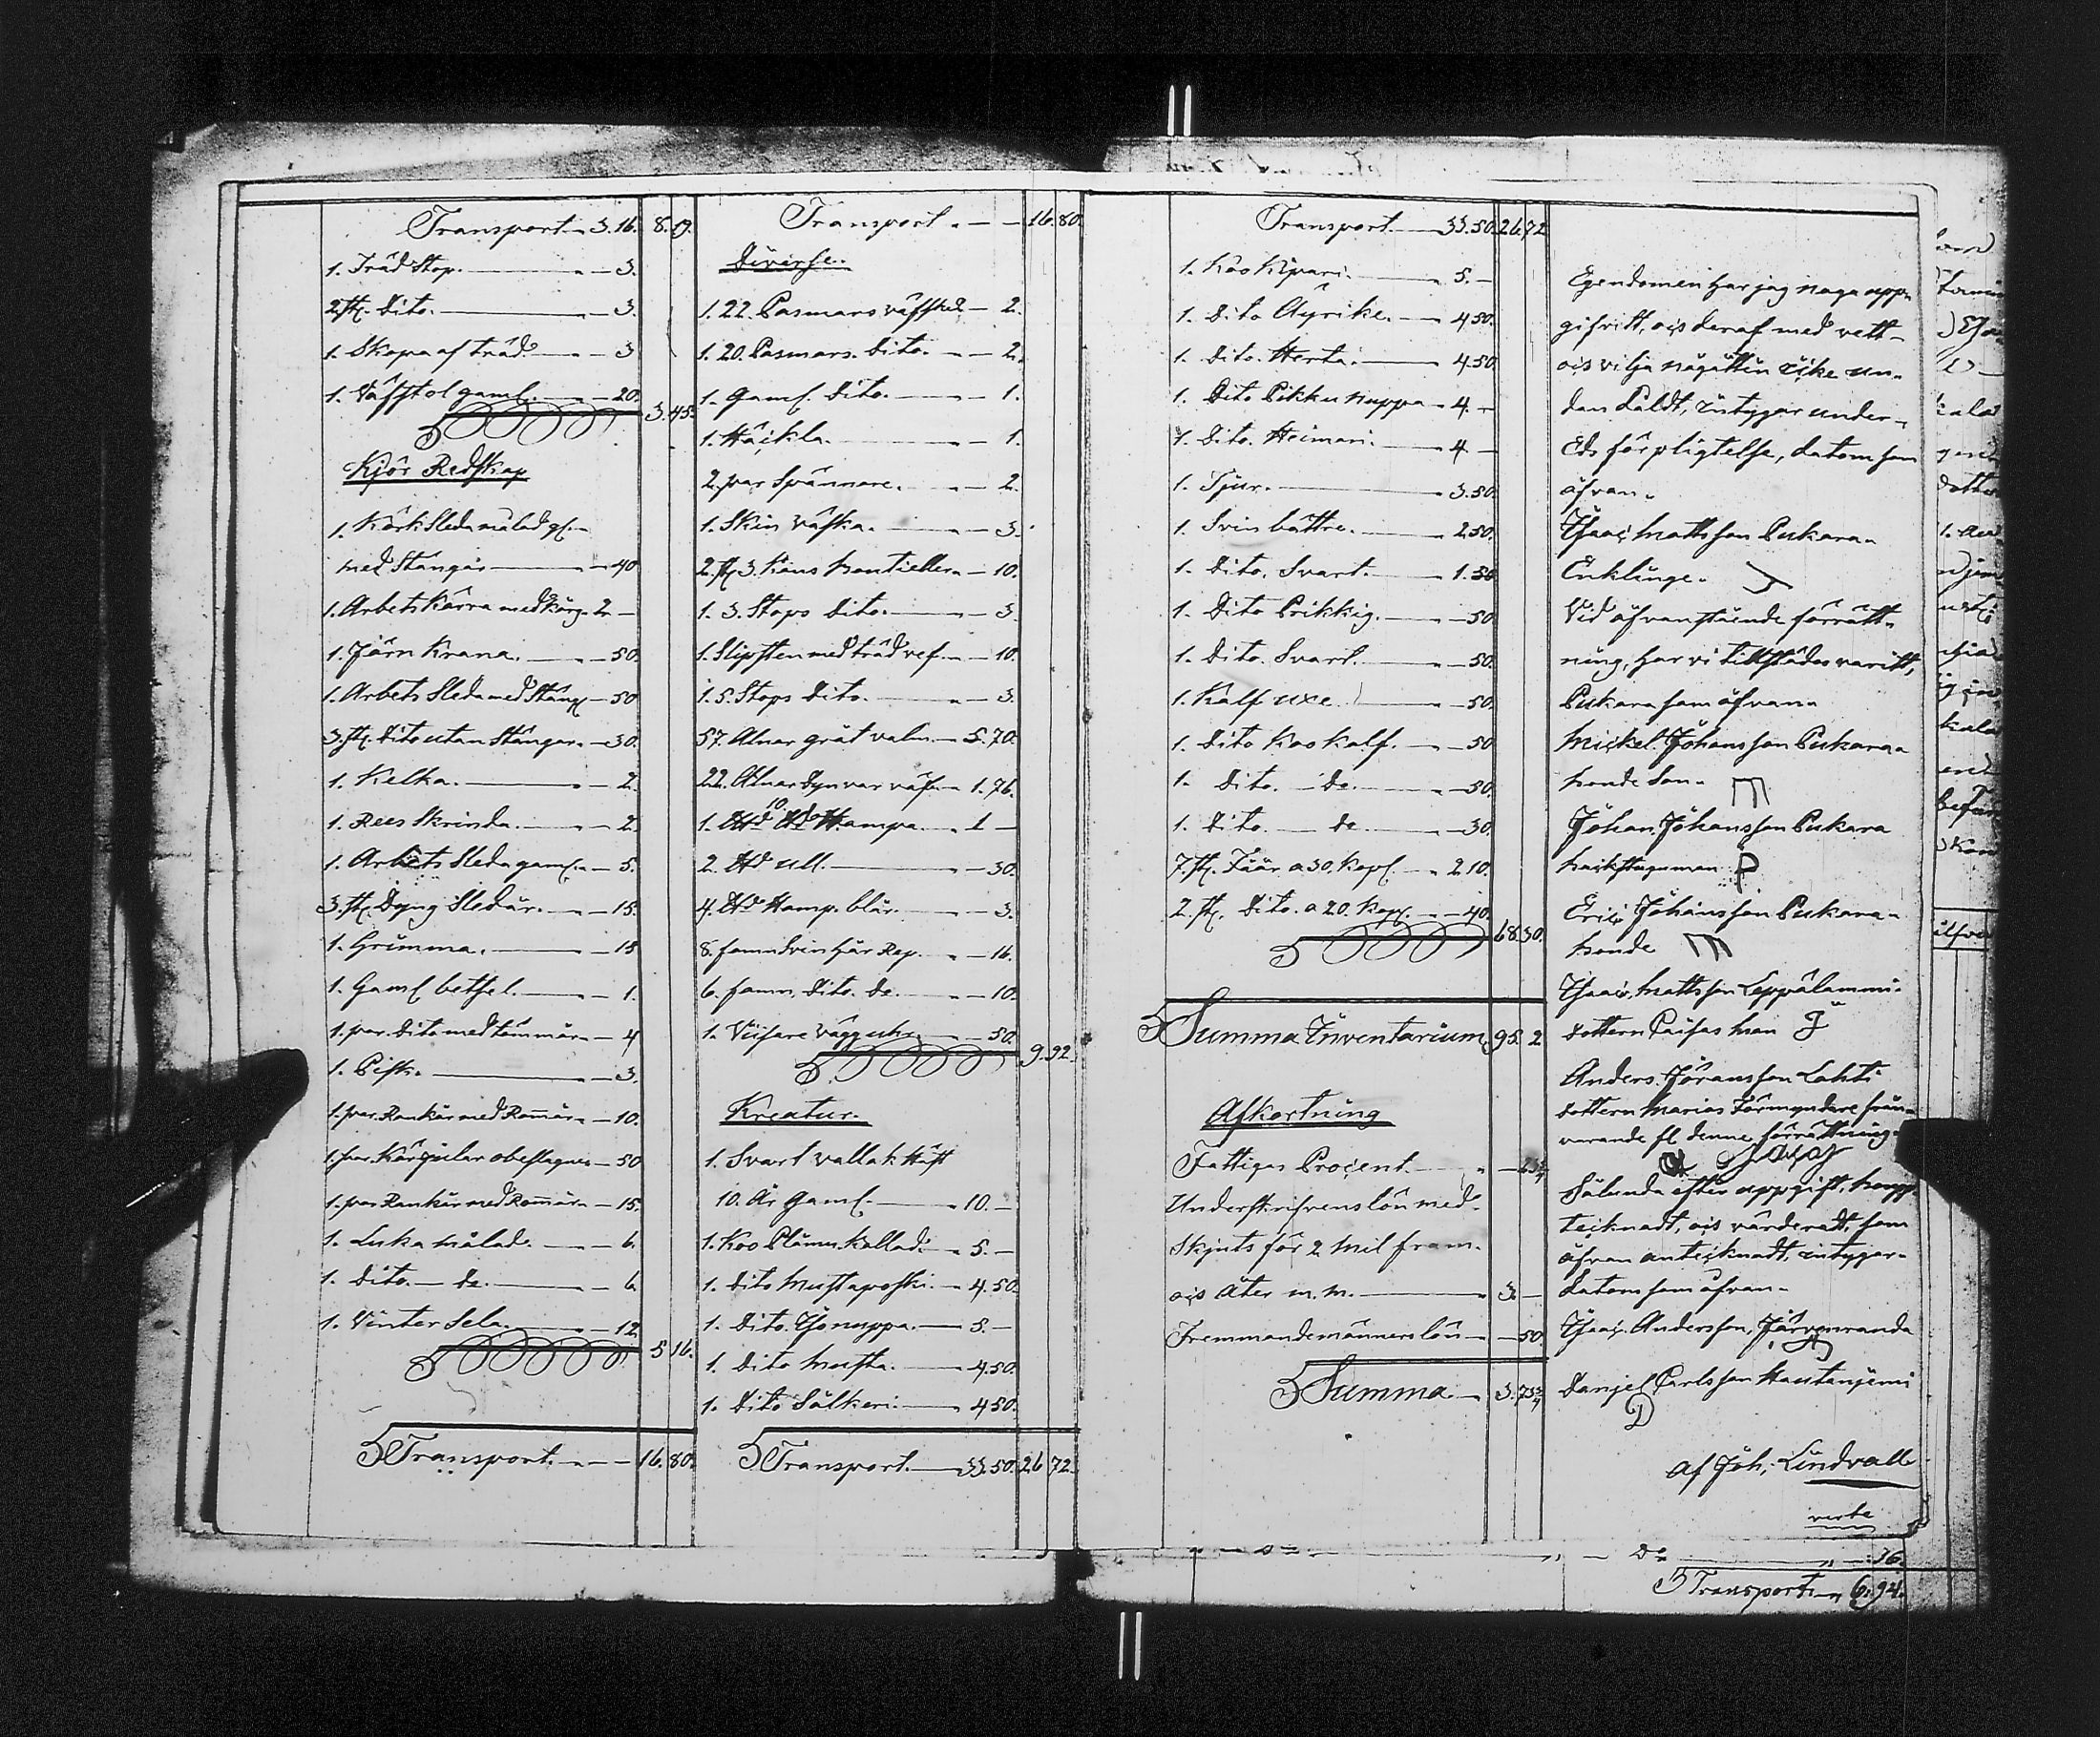 Transport 3.16. 8.19.
1. Träd Stop. 3.
2. st. Dito. 3.
1. Skopa af träd. 3
1. Väfstol gaml. 20.
3.45.
Kjör Redskap
1. Körk Sleda målad gl.
med Stänger 40
1. Arbets Kärra med Kärg. 2.
1. Järn Krana. 50.
1. Arbets Sleda med Stäng 50
3. st. Dito utan Stänger. 30.
1. Kelka. 2.
1. Rees Skrinda. 2.
1. Arbets Sleda gaml. 5.
3. st. Dyng Sledar. 15.
1. Grimma. 15
1. Gaml betsel. 1.
1. par Dito med tömmar 4
1. Pisk. 3.
1. par. Rankär med Romär 10.
1. par Kärhjular obeslagna 50
1. par Rankär med Romär 15.
1. Luka målad. 6.
1. Dito. de. 6.
1. Vinter Sela. 12.
5.16.
Transport. 16.80.
Transport. 16.80.
Diverse.
1. 22. Pasmars väfsked 2.
1. 20. Pasmars. Dito. 2.
1. Gaml. Dito. 1.
1. Häckla. 1.
2. par Spännare. 2.
1. Skin väska. 3.
2. st. 3. Kans 10.
1. 3. Stops Dito. 3.
1. Slipsten med träd vef. 10.
1. 5. Stops Dito. 3.
57. Alnar gråt valm. 5.70.
22. Alnar Dynvar väf. 1.76.
1. 10. Hampa. 1
2. ull. 30.
4. Hamp. blår. 3.
8. famn Svin hår Rep. 16.
6. famn. Dito. De. 10.
1. Visare vägguhr 50.
9.92.
Kreatur.
1. Svart vallak Häst
10. År gaml. 10.
1. Koo Plämu Kallad. 5.
1. Dito Mustaposki. 4.50.
1. Dito. Isonuppa. 5.
1. Dito Musta. 4.50.
1. Dito Sälkeri. 4.50.
Transport. 33.50. 26.72.
Transport. 33.50. 26.72
1. Koo Kipari. 5.
1. Dito Äyrike. 4.50.
1. Dito. Herta. 4.50.
1. Dito Pikku Nuppa 4.
1. Dito. Heimari. 4
1. Tjur. 3.50.
1. Svin bättre. 2.50.
1. Dito. Svart. 1.50
1. Dito Prikkig. 50
1. Dito. Svart. 50.
1. Kalf uxe 50.
1. Dito Koo Kalf. 50
1. Dito. De. 50.
1. Dito. de 30.
7. st. Fåär a 30. Kop. 2.10.
2. st. Dito. a 20. Kop. 40.
68.30.
Summa Inventarium 95. 2
Afkortning
Fattigas Procent.
Underskrifvens lön med
Skjuts för 2 Mil fram.
ock åter m. m. 3.
Fremmandemänners lön 50
Summa 3.73 3/4
Egendomen har jag noga upp
gifvitt, ock deraf med vett
ock vilja någåttin icke un
dan Dåldt, intygar under
Eds förpligtelse, datom som
åfvan.
Isaac Mattsson Pukara
Enklinge.
Vid åfvanstående förrätt
ning, har vi tillstädes varitt,
Pukara som åfvan.
Mickel Johansson Pukara
bonde Son. m
Johan Johansson Pukara
P
Eric Johansson Pukara
bonde m
Isaac Mattsson Leppälammi
dottern Caisas man J
Anders Jöransson Lahti
dottern Marias Förmyndare från
varande fl denne förrättning
Sålunda efter uppgift, upp
tecknadt, ock värderadt, som
åfvan antecknadt, intygar
Datom som åfvan
Isaac Andersson Järvenranda
Danjel Carlsson Hautanjemi
D
Af Joh. Lindvall
verte
D:o 16.
Transport 6.94.